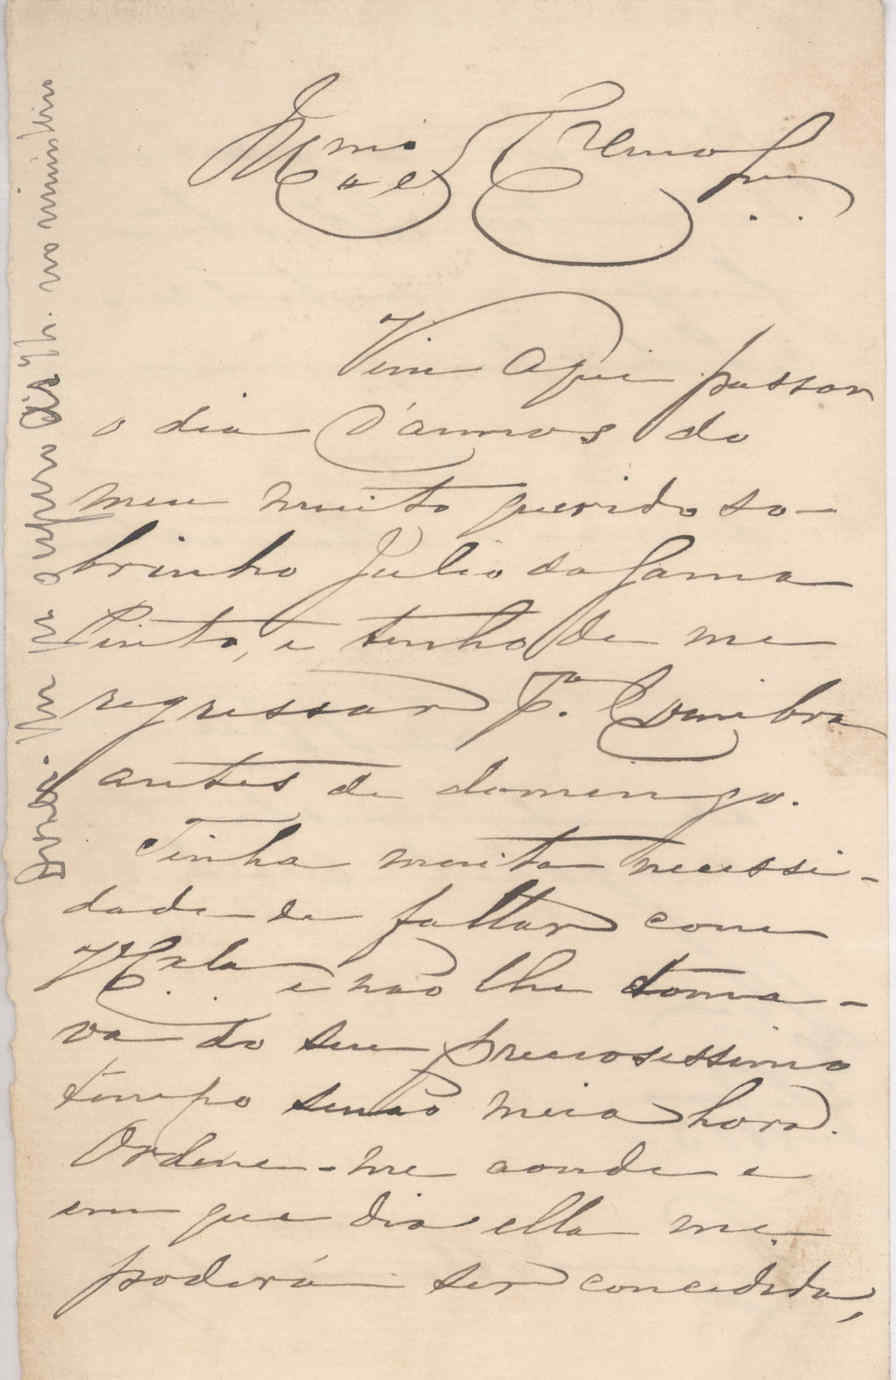 Illmo e Exmo Sr.
Vim aqui passar
o dia d'annos do
meu muito querido so-
brinho Julio da Gama
Pinto, e tenho de me
regressar Pa. Coimbra
antes de domingo.
Tinha muita necessi-
dade de fallar com
V Exla e não lhe toma-
va do seu preciosissimo
tempo senão meia hora.
Ordene-me aonde e
em que dia ella me
poderá ser concedida,
espero ás 4 h. no ministerio